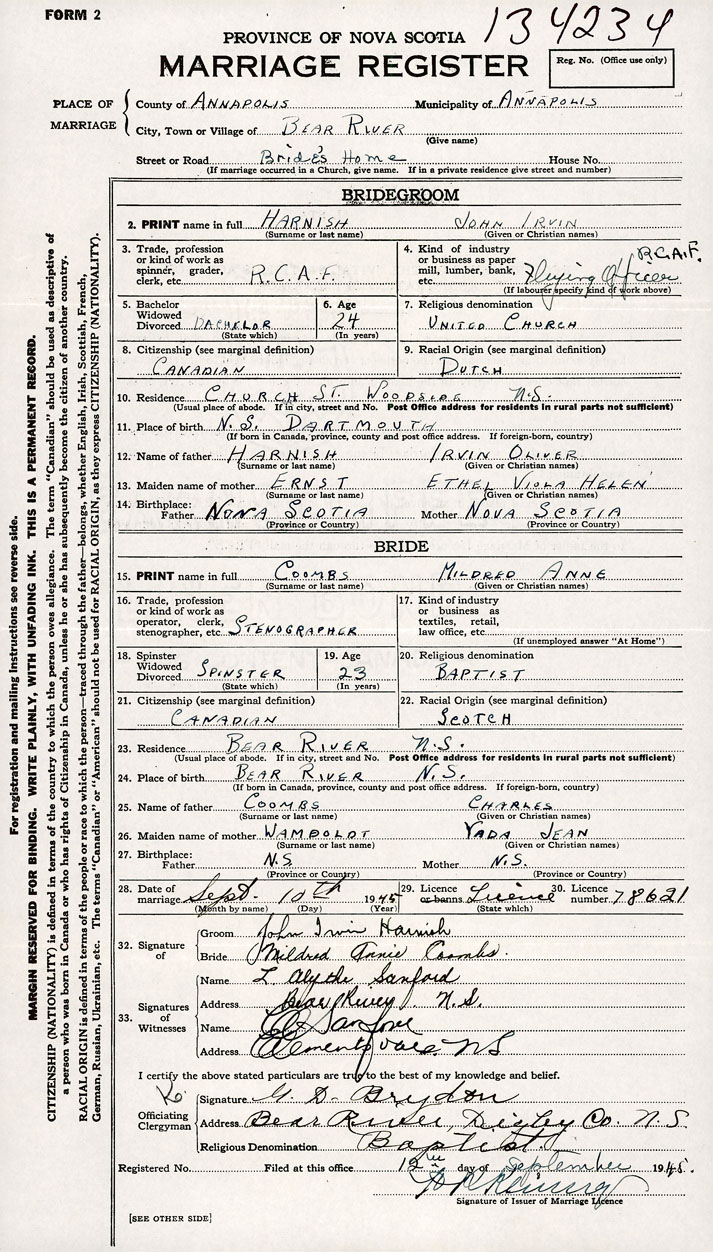 FORM 2
134234
PROVINCE OF NOVA SCOTIA
MARRIAGE REGISTER
Reg. No. (Office use only)
PLACE OF MARRIAGE
County of ANNAPOLIS Municipality of ANNAPOLIS
City, Town or Village of BEAR RIVER
(Give name)
Street or Road Bride's Home House No.
(If marriage occurred in a Church, give name. If in a private residence give street and number)
BRIDEGROOM
2. PRINT name in full HARNISH JOHN IRVIN
(Surname or last name) (Given or Christian names)
3. Trade, profession or kind of work as spinner, grader, clerk, etc. R.C.A.F.
4. Kind of industry or business as paper mill, lumber, bank, etc. Flying Officer R.C.A.F.
(If labourer specify kind of work above)
5. Bachelor Widowed Divorced BACHELOR
(State which)
6. Age 24
(In years)
7. Religious denomination
UNITED CHURCH
8. Citizenship (see marginal definition)
CANADIAN
9. Racial Origin (see marginal definition)
DUTCH
10. Residence CHURCH ST. WOODSIDE N.S.
(Usual place of abode. If in city, street and No. Post Office address for residents in rural parts not sufficient)
11. Place of birth N.S. DARTMOUTH
(If born in Canada, province, county and post office address. If foreign-born, country)
12. Name of father HARNISH IRVIN OLIVER
(Surname or last name) (Given or Christian names)
13. Maiden name of mother ERNST ETHEL VIOLA HELEN
(Surname or last name) (Given or Christian names)
14. Birthplace: Father NOVA SCOTIA Mother NOVA SCOTIA
(Province or Country) (Province or Country)
BRIDE
15. PRINT name in full COOMBS MILDRED ANNE
(Surname or last name) (Given or Christian names)
16. Trade, profession or kind of work as operator, clerk, stenographer, etc. STENOGRAPHER
17. Kind of industry or business as textiles, retail, law office, etc.
(If unemployed answer "At Home")
18. Spinster Widowed Divorced SPINSTER
(State which)
19. Age 23
(In years)
20. Religious denomination
BAPTIST
21. Citizenship (see marginal definition)
CANADIAN
22. Racial Origin (see marginal definition)
SCOTCH
23. Residence BEAR RIVER N.S.
(Usual place of abode. If in city, street and No. Post Office address for residents in rural parts not sufficient)
24. Place of birth BEAR RIVER N.S.
(If born in Canada, province, county and post office address. If foreign-born, country)
25. Name of father COOMBS CHARLES
(Surname or last name) (Given or Christian names)
26. Maiden name of mother WAMBOLDT VADA JEAN
(Surname or last name) (Given or Christian names)
27. Birthplace: Father N.S Mother N.S.
(Province or Country) (Province or Country)
28. Date of marriage Sept. 10th 1945
(Month by name) (Day) (Year)
29. Licence or banns Licence
(State which)
30. Licence number 78621
32. Signature of
Groom John Irvin Harnish
Bride Mildred Annie Coombs.
33. Signatures of Witnesses
Name L Alythe Sanford
Address Bear River N.S.
Name Sanford
Address Clementsvale NS
I certify the above stated particulars are true to the best of my knowledge and belief.
Officiating Clergyman
Signature G. D. Brydon
Address Bear River, Digby Co. N.S.
Religious Denomination Baptist
Registered No. Filed at this office 12th day of September 1945.
Signature of Issuer of Marriage Licence
[SEE OTHER SIDE]
For registration and mailing instructions see reverse side.
MARGIN RESERVED FOR BINDING. WRITE PLAINLY, WITH UNFADING INK. THIS IS A PERMANENT RECORD.
CITIZENSHIP (NATIONALITY) is defined in terms of the country to which the person owes allegiance. The term "Canadian" should be used as descriptive of
a person who was born in Canada or who has rights of Citizenship in Canada, unless he or she has subsequently become the citizen of another country.
RACIAL ORIGIN is defined in terms of the people or race to which the person—traced through the father—belongs, whether English, Irish, Scottish, French,
German, Russian, Ukrainian, etc. The terms "Canadian" or "American" should not be used for RACIAL ORIGIN, as they express CITIZENSHIP (NATIONALITY).